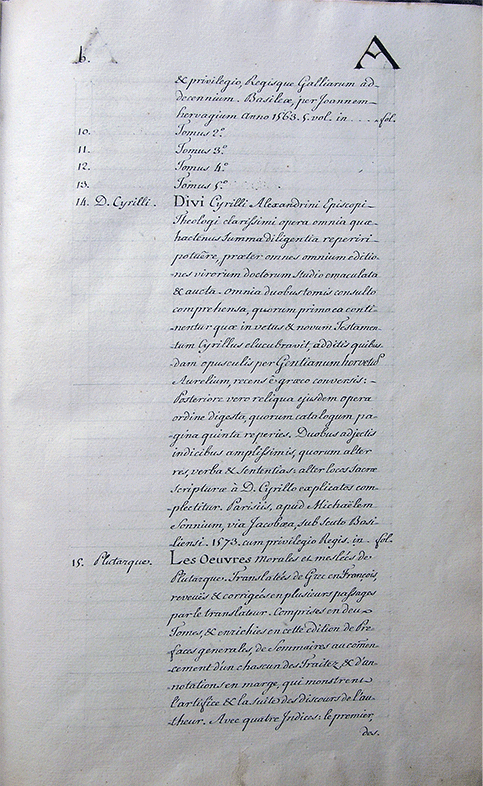 6. A
& privilegio, Regisque Galliarum ad
decennium. Basileæ, per Joannem
hervagium Anno 1563. 5. vol. in . . . . fol.
10. Tomus 2.º
11. Tomus 3.º
12. Tomus 4.º
13. Tomus 5.º
14. D. Cyrilli. Divi Cyrilli Alexandrini Episcopi
Theologi clarissimi opera omnia quæ
hactenus summa diligentia reperiri
potuêre, præter omnes omnium editio
nes virorum doctorum studio emaculata
& aucta. omnia duobus tomis consulto
comprehensa, quorum primo ea conti
nentur quæ in vetus & novum Testamen
tum Cyrillus elucubravit, additis quibus
dam opusculis per Gentianum hervetũ
Aurelium, recens è græco conversis;
Posteriore vero reliqua ejusdem opera
ordine digesta, quorum catalogum pa
gina quinta reperies. Duobus adjectis
indicibus amplissimis, quorum alter
res, verba & sententias: alter locos sacræ
scripturæ à D. Cyrillo explicatos com
plectitur. Parisiis, apud Michaëlem
Sonnium, via Jacobæa, sub scuto Basi
liensi. 1573. cum privilegio Regis. in fol.
15. Plutarque. Les Oeuvres Morales et meslées de
Plutarque. Translatés de Grec en François,
reveuës & corrigées en plusieurs passages
par le translateur. Comprises en deux
Tomes, & enrichies en cette édition de Pre
faces generales, de Sommaires au comen
cement d'un chascun des Traitez & d'an
notations en marge, qui monstrent
l'artifice & la suite des discours de l'au
theur. Avec quatre Indices: le premier,
des.